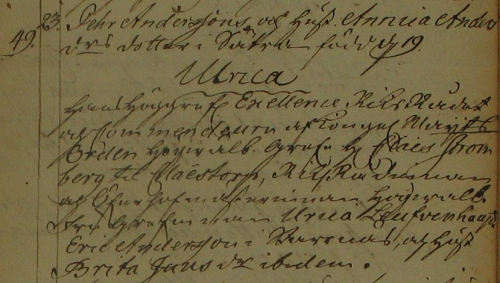 49. 23. Pehr Anderssons och Hust. Annica Anders
drs dotter i Sätra född d 19.
Ulrica
Hans Höggrefl. Excellence Riks Rådet
och Commendeuren af Kongl. Maÿtts
Orden Högwälb. Grefwe H. Claes Strom
berg til Claestorp, Riks Rådinnan
och Öfwerhofmästerinnan Högwälb.
Fru Grefwinnan Ulrica
Eric Andersson i Warnäs, och Hust.
Brita Jans dr ibidem.